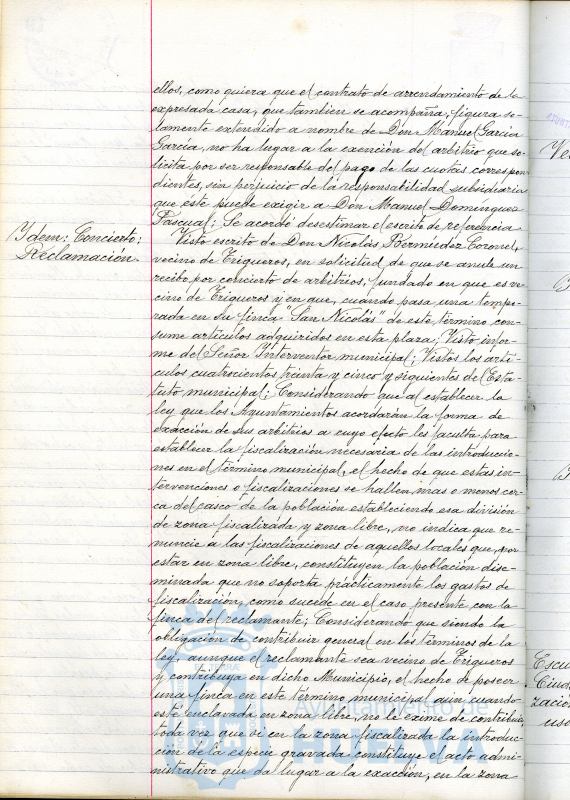 ellos, como quiera que el contrato de arrendamiento de la
expresada casa, que tambien se acompaña, figura so-
lamente extendido a nombre de Don Manuel Garcia
Garcia, no ha lugar a la exención del arbitrio que so-
licita por ser responsable del pago de las cuotas correspon
dientes, sin perjuicio de la responsabilidad subsidiaria
que éste puede exigir a Don Manuel Dominguez
Pascual; Se acordó desestimar el escrito de referencia
Ydem: Concierto:
Reclamación.
Visto escrito de Don Nicolás Bermudez Coronel,
vecino de Trigueros, en solicitud de que se anule un
recibo por concierto de arbitrios, fundado en que es ve
cino de Trigueros y en que, cuando pasa una tempo-
rada en su finca "San Nicolás" de este término con-
sume articulos adquiridos en esta plaza; Visto infor-
me del Señor Interventor municipal; Vistos los arti-
culos cuatrocientos treinta y cinco y siguientes del Esta-
tuto municipal; Considerando que al establecer la
ley que los Ayuntamientos acordarán la forma de
exacción de sus arbitrios a cuyo efecto les faculta para
establecer la fiscalización necesaria de las introduccio-
nes en el término municipal, el hecho de que estas in-
tervenciones o fiscalizaciones se hallen mas o menos cer-
ca del casco de la población estableciendo esa división
de zona fiscalizada y zona libre, no indica que re-
nuncie a las fiscalizaciones de aquellos locales que, por
estar en zona libre, constituyen la población dise-
minada que no soporta prácticamente los gastos de
fiscalización, como sucede en el caso presente con la
finca del reclamante; Considerando que siendo la
obligación de contribuir general en los términos de la
ley, aunque el reclamante sea vecino de Trigueros
y contribuya en dicho Municipio, el hecho de poseer
una finca en este término municipal aun cuando
esté enclavada en zona libre, no le exime de contribuir
toda vez que si en la zona fiscalizada la introduc-
ción de la especie gravada constituye el acto admi-
nistrativo que da lugar a la exacción, en la zona
Escu
Ciud
zació
use
Ayuntamiento de